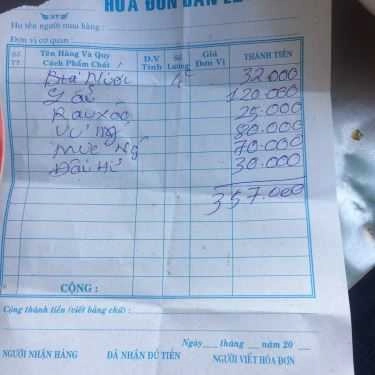 HÓA ĐƠN BÁN LẺ
Họ tên người mua hàng :
Đơn vị cơ quan :
Số TT Tên Hàng Và Quy Cách Phẩm Chất Đ.V Tính Số Lượng Giá Đơn Vị THÀNH TIỀN
32.000
120.000
Rau xào 25.000
80.000
70.000
30.000
357.000
CỘNG :
Cộng thành tiền (viết bằng chữ) :
Ngày tháng năm 20
NGƯỜI NHẬN HÀNG ĐÃ NHẬN ĐỦ TIỀN NGƯỜI VIẾT HÓA ĐƠN